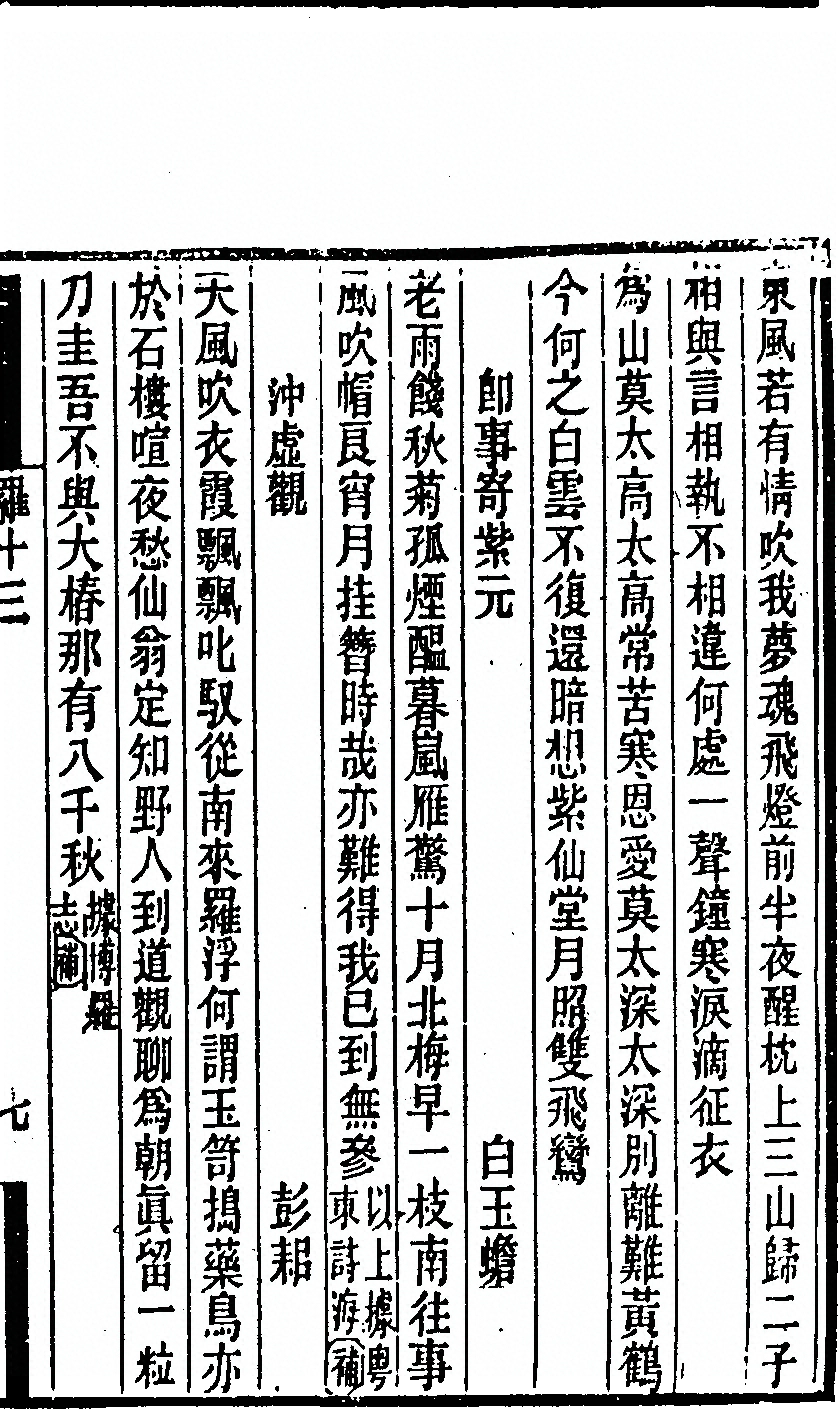 東風若有情吹我夢魂飛燈前半夜醒枕上三山歸二子
相與言相執不相違何處一聲鐘寒淚滴征衣
為山莫太高太高常苦寒恩愛莫太深太深別離難黃鶴
今何之白雲不復還暗想紫仙堂月照雙飛鸞
卽事寄紫元 白玉蟾
老雨餞秋菊孤煙醞暮嵐雁驚十月北梅早一枝南往事
風吹帽良宵月挂簪時哉亦難得我已到無參以上據粤東詩海補
沖虛觀 彭耜
天風吹衣霞飄飄叱馭從南來羅浮何謂玉笥搗藥鳥亦
於石樓喧夜愁仙翁定知野人到道觀聊爲朝眞留一粒
刀圭吾不與大椿那有八千秋據博羅志補
羅十三
七